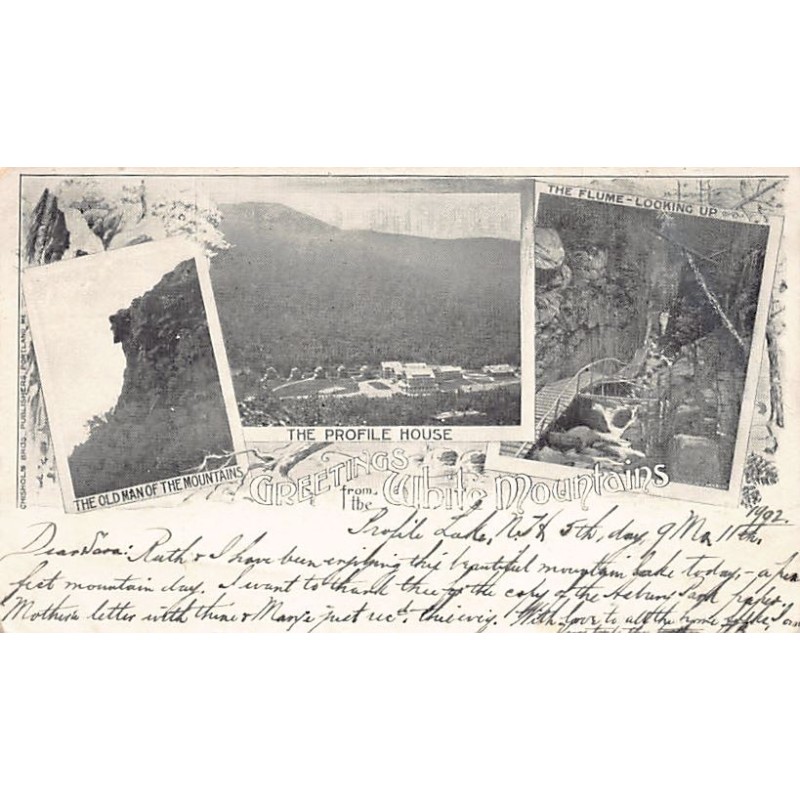 THE FLUME - LOOKING UP
CHISHOLM BROS., PUBLISHERS, PORTLAND, ME.
THE PROFILE HOUSE
THE OLD MAN OF THE MOUNTAINS
GREETINGS
from the
White Mountains
Profile Lake, N.H. 5th, day, 9 Mo, 11th,
Dear Sara: Ruth & I have been enjoying this beautiful mountain lake today, - a per
fect mountain day. I want to thank thee for the copy of the paper.
Mother's letter with thine & Mary's just rec'd. this evg. With love to all the home folks, I am